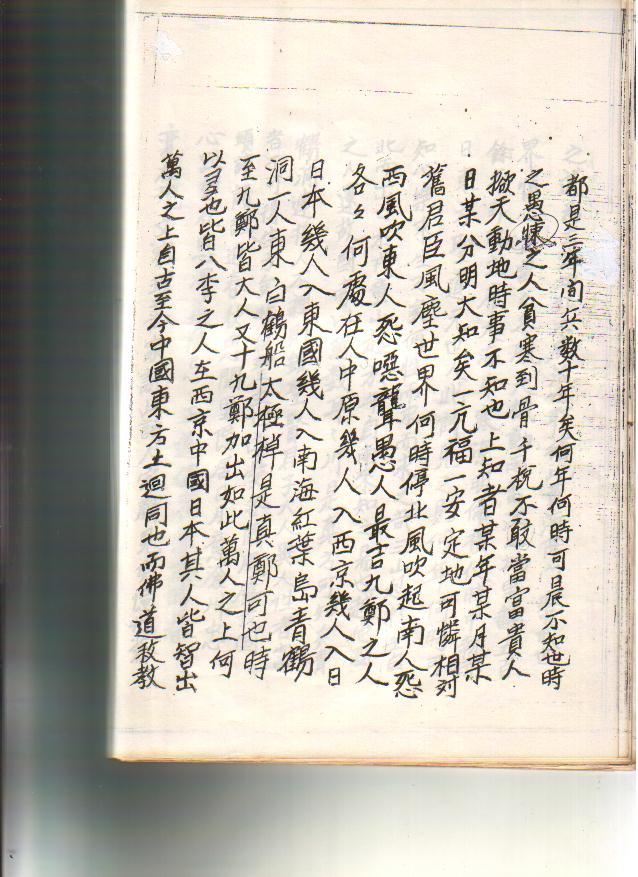 都是三年间兵数十年矣何年何時可晨不知世時
之愚悚之人貧寒到骨千杭不敢當富貴人
掀天動地時事不知也上知者某年某月某
日某分明大知矣一亢福一安定地可憐相対
舊君臣風塵世界何時停北風吹起南人怨
西風吹東人怨噁聾愚人最吉九鄭之人
各々何處在人中原幾人入西京幾人入日
日本幾人入東國幾人入南海紅葉島青鶴
洞一人東白鶴船太極棹是真鄭可也時
至九鄭皆大人又十九鄭加出如此萬人之上何
以多也皆八李之人在西京中國日本其人皆智出
萬人之上自古至今中國東方土迴同也而佛道教